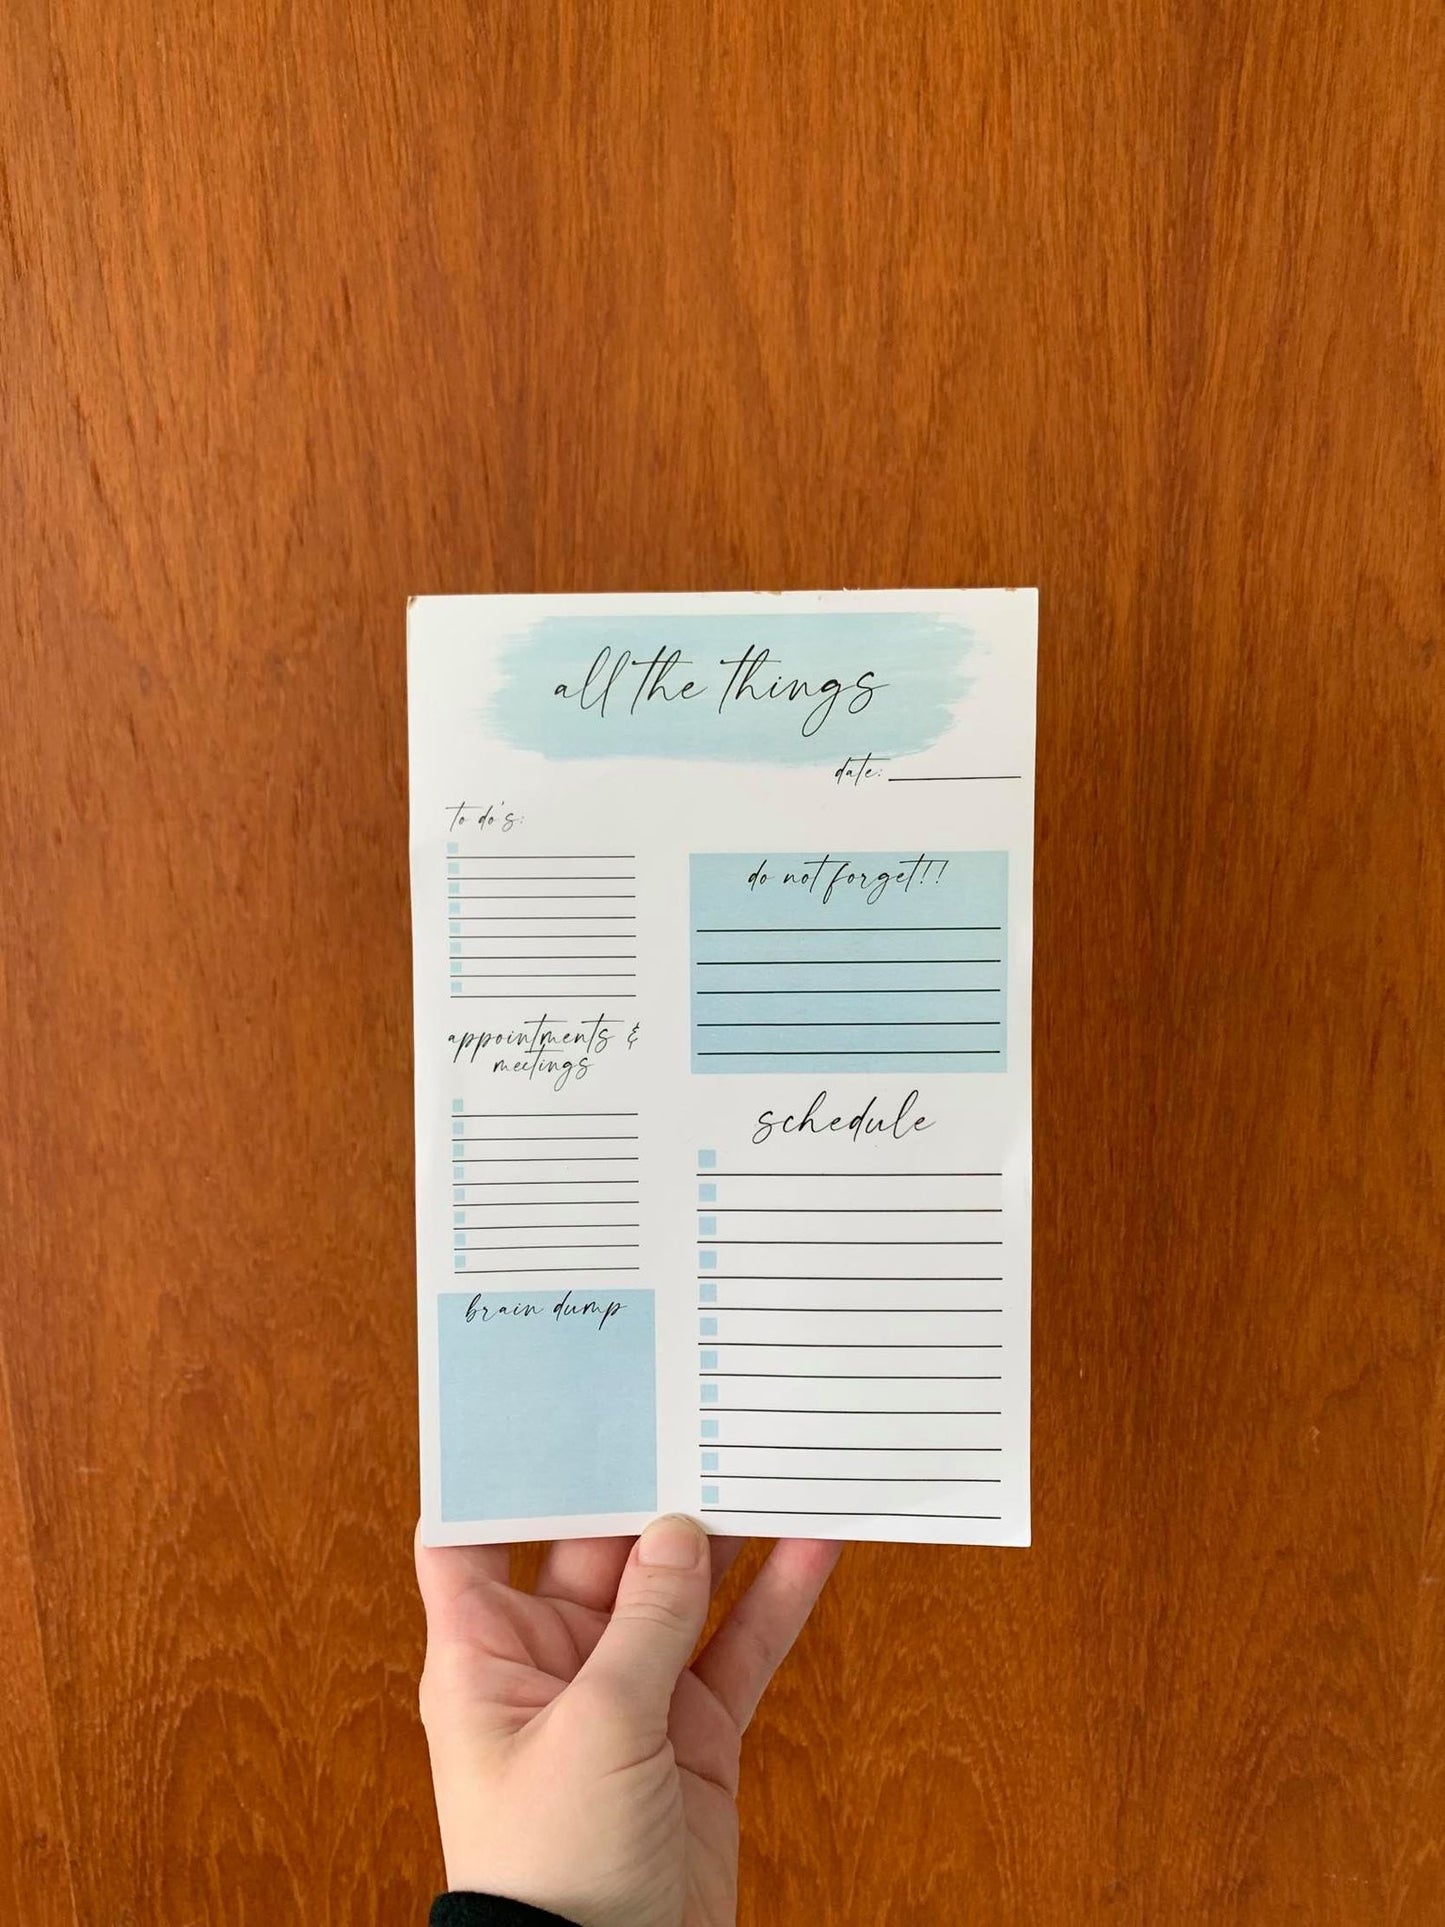 all the things
date:
to do's:
appointments &
meetings
brain dump
do not forget!!
schedule